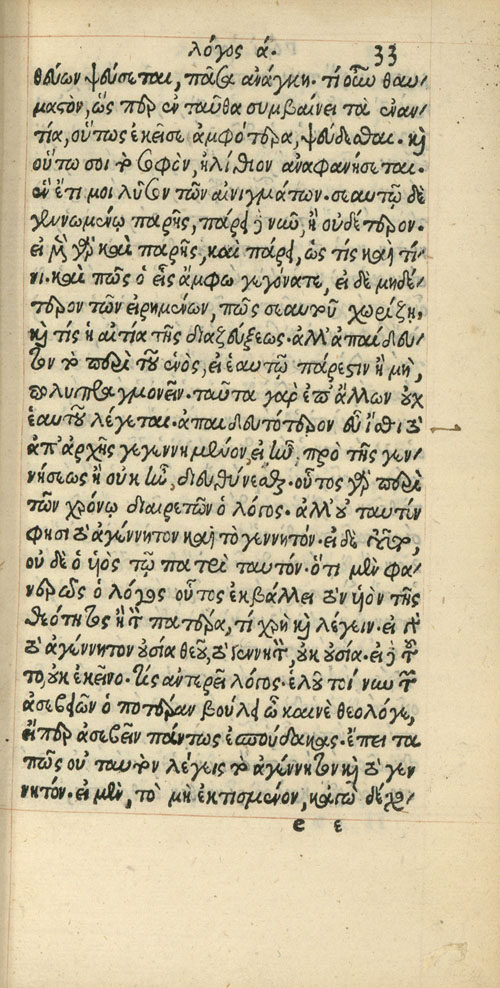 λόγος ά. 33
θεύων ψεύσεται, πᾶσα ἀνάγκη. τί οὖν θαυ/
μαστὸν, ὥσπερ ἐν ταῦθα συμβαίνει τὰ ἐναν/
τία, οὕτως ἐκεῖσε ἀμφότερα, ψεύδεσθαι. κỳ
οὕτω σοι τὸ σοφὸν, ἠλίθιον ἀναφανήσεται.
ἓν ἔτι μοι λῦσον τῶν αἰνιγμάτων. σεαυτῷ δὲ
γεννωμένῳ παρῆς, πάρει ἢ νῦν, ἢ οὐδέτερον.
εἰ μὲν γὰρ καὶ παρῆς, καὶ πάρει, ὡς τίς καὶ τί/
νι. καὶ πῶς ὁ εἷς ἄμφω γεγόνατε, εἰ δὲ μηδέ/
τερον τῶν εἰρημένων, πῶς σεαυτοῦ χωρίζῃ,
καὶ τίς ἡ αἰτία τῆς διαζεύξεως. ἀλλ' ἀπαίδευ/
τον τὸ περὶ τοῦ ἑνὸς, εἰ ἑαυτῷ πάρεστιν ἢ μὴ,
πολυπραγμονεῖν. ταῦτα γὰρ ἐπ' ἄλλων οὐχ
ἑαυτοῦ λέγεται. ἀπαιδευτότερον εὖ ἴσθι τὸ
ἀπ' ἀρχῆς γεγεννημένον, εἰ ἦν, πρὸ τῆς γεν/
νήσεως ἢ οὐκ ἦν, διευθύνεσθαι. οὗτος γὰρ περὶ
τῶν χρόνῳ διαιρετῶν ὁ λόγος. ἀλλ' οὐ ταυτόν
φησι τὸ ἀγέννητον καὶ τὸ γεννητόν. εἰ δὲ τοῦτο,
οὐ δὲ ὁ υἱὸς τῷ πατρὶ ταυτόν. ὅτι μὲν φα/
νερῶς ὁ λόγος οὗτος ἐκβάλλει τὸν υἱὸν τῆς
θεότητος ἢ τὸν πατέρα, τί χρὴ καὶ λέγειν. εἰ γὰρ
τὸ ἀγέννητον οὐσία θεοῦ, τὸ γεννητὸν, οὐκ οὐσία. εἰ δὲ τοῦ
το, οὐκ ἐκεῖνο. τίς ἀντερεῖ λόγος. ἑλοῦ τοί νυν τῶν
ἀσεβειῶν ὁποτέραν βούλει ὦ καινὲ θεολόγε,
εἴπερ ἀσεβεῖν πάντως ἐσπούδακας. ἔπειτα
πῶς οὐ ταυτὸν λέγεις τὸ ἀγέννητον καὶ τὸ γεν
νητόν. εἰ μὲν, τὸ μὴ ἐκτισμένον, κᾀγὼ δέχο/
e ε